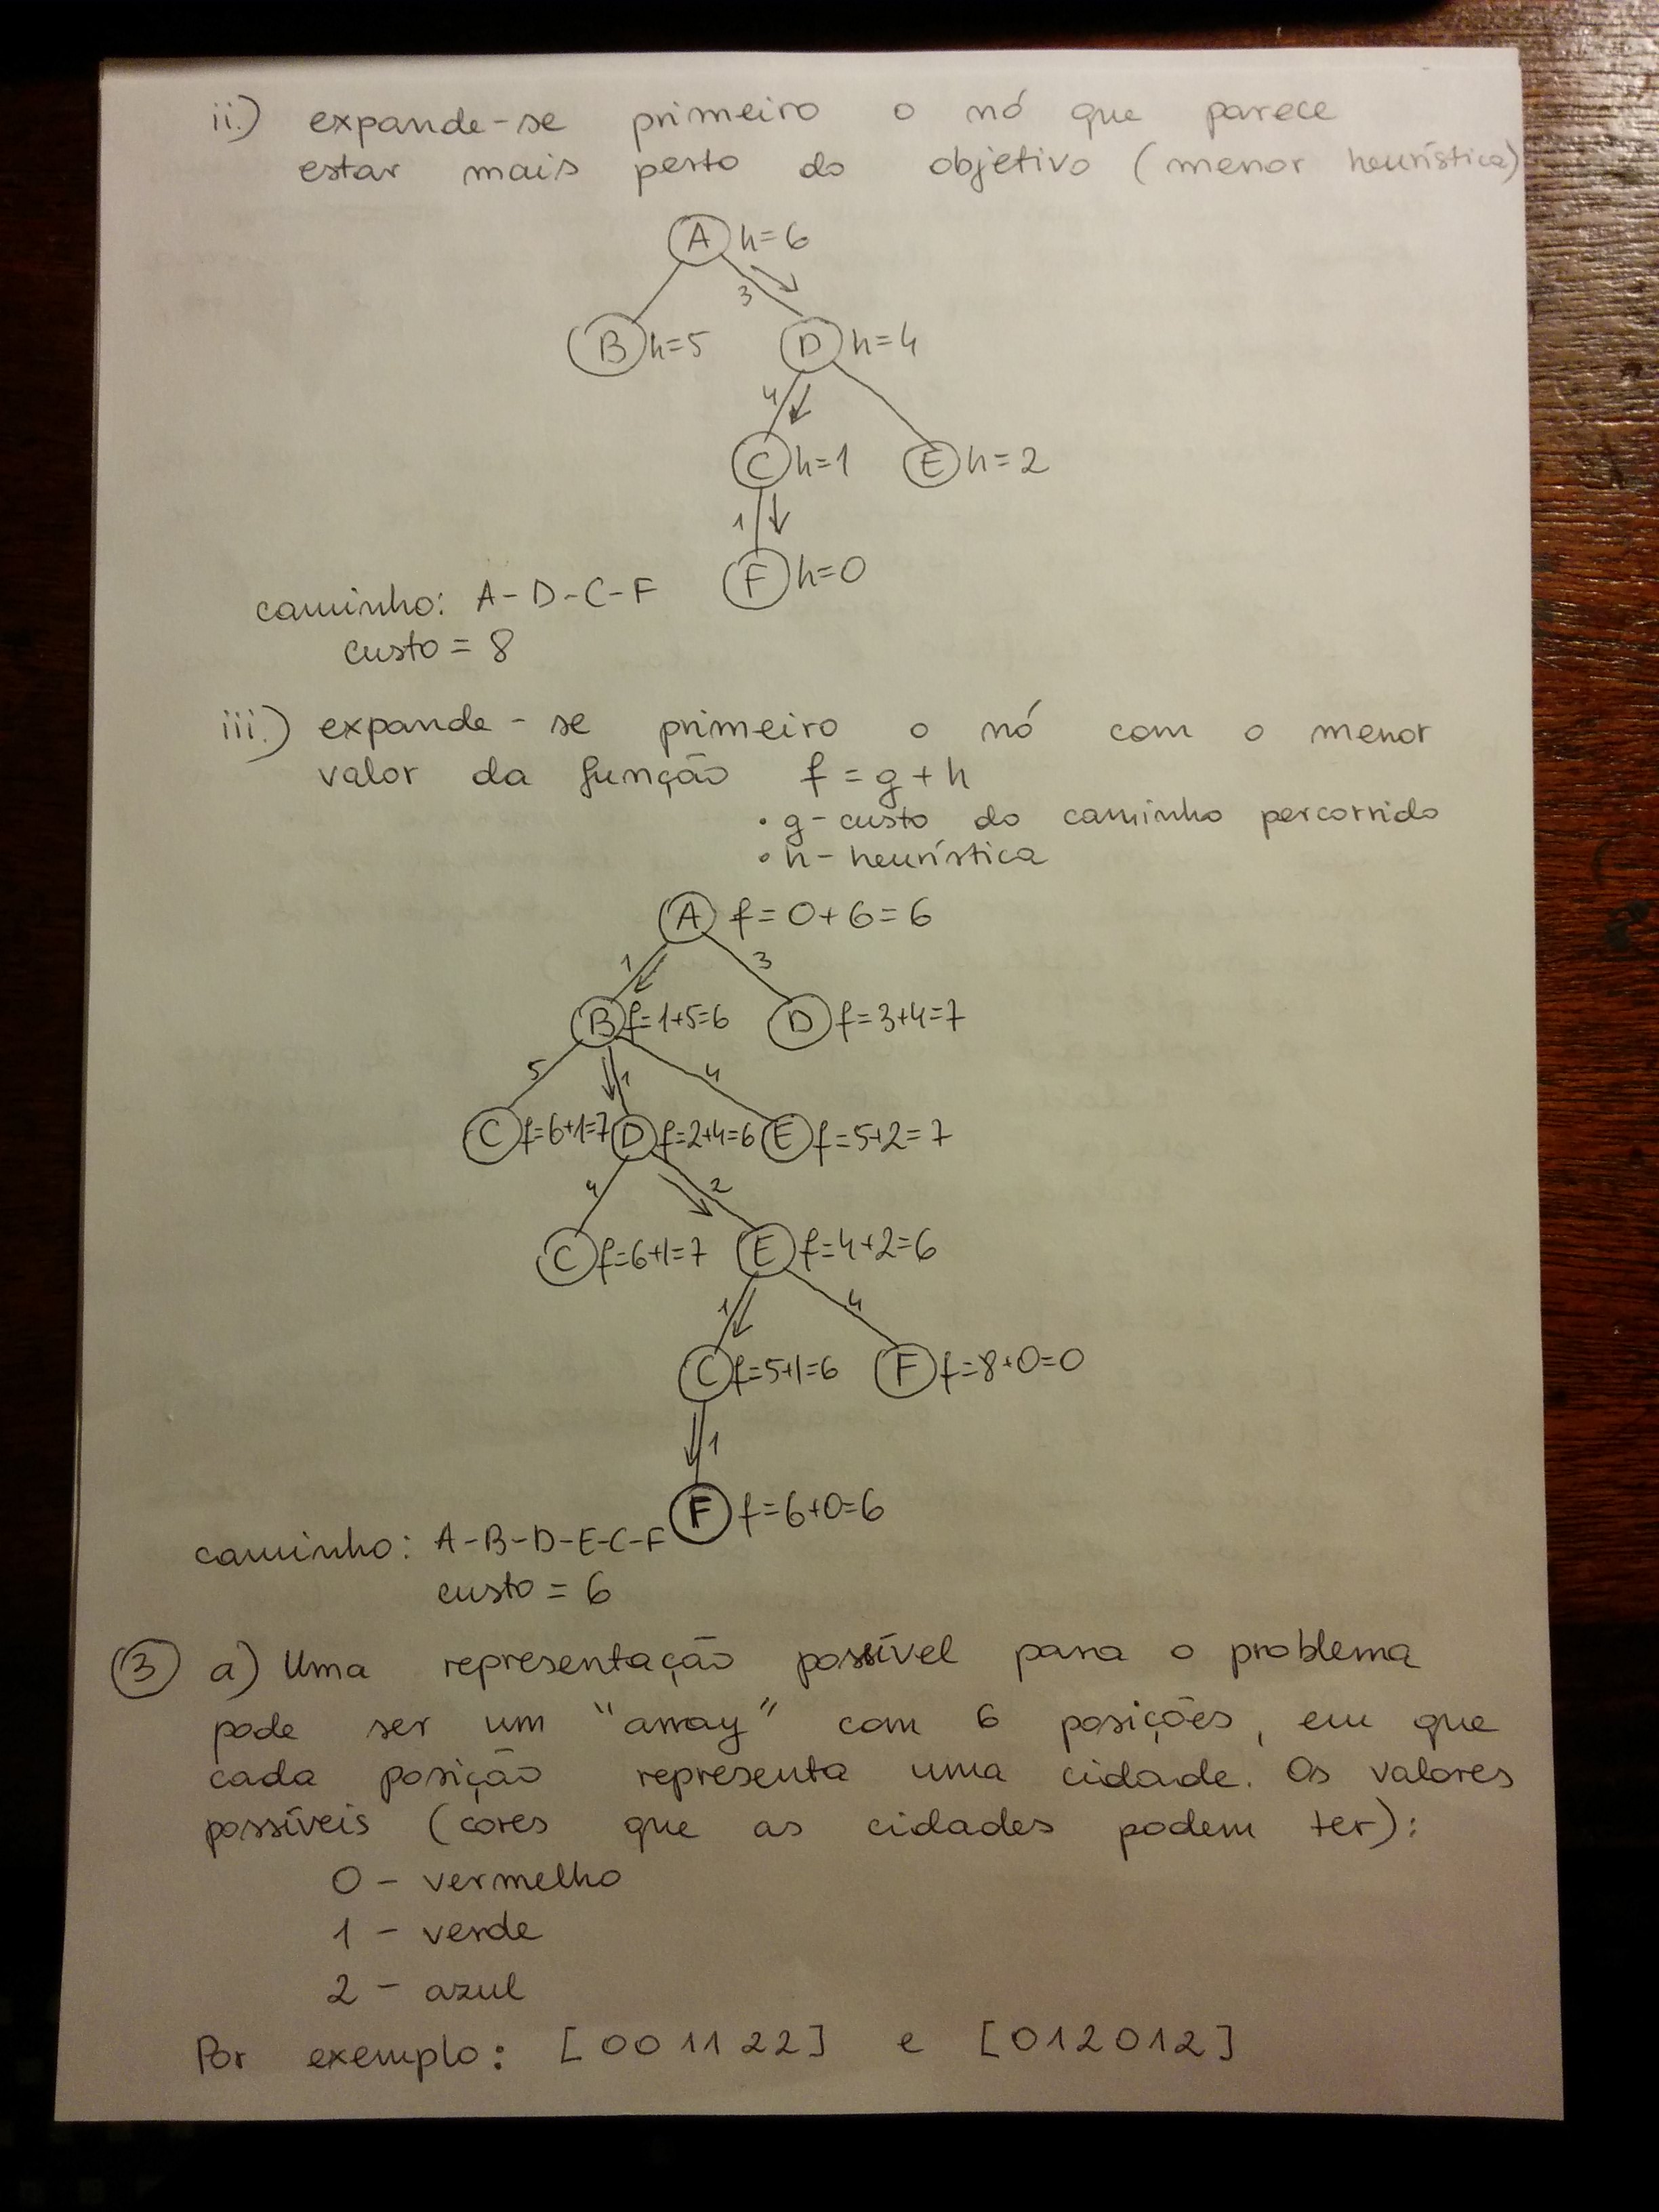 ii.) expande-se primeiro o nó que parece
estar mais perto do objetivo (menor heurística)
A h=6
3
B h=5 D h=4
4
C h=1 E h=2
1
F h=0
caminho: A-D-C-F
custo = 8
iii.) expande-se primeiro o nó com o menor
valor da função f = g + h
• g - custo do caminho percorrido
• h - heurística
A f=0+6=6
1 3
B f=1+5=6 D f=3+4=7
5 1 4
C f=6+1=7 D f=2+4=6 E f=5+2=7
4 2
C f=6+1=7 E f=4+2=6
1 4
C f=5+1=6 F f=8+0=0
1
F f=6+0=6
caminho: A-B-D-E-C-F
custo = 6
3 a) Uma representação possível para o problema
pode ser um "array" com 6 posições, em que
cada posição representa uma cidade. Os valores
possíveis (cores que as cidades podem ter):
0 - vermelho
1 - verde
2 - azul
Por exemplo: [001122] e [012012]